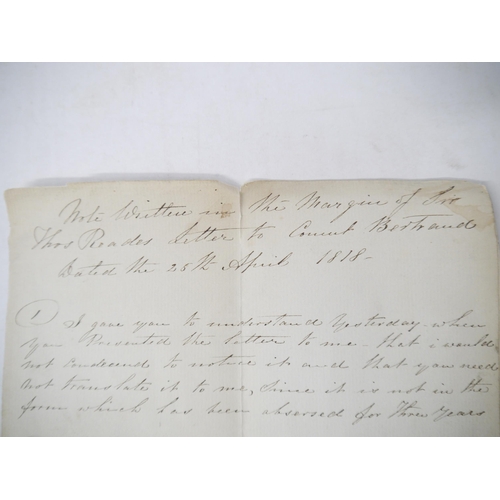 Note Written in the Margin of Sir
Thos Reades letter to Count Bertrand
Dated the 25th April 1818-
(1) I gave you to understand Yesterday when
you Presented the letter to me - that i would
not Condecend to notuce it and that you need
not translate it to me, Since it is not in the
form which has been observed for three Years